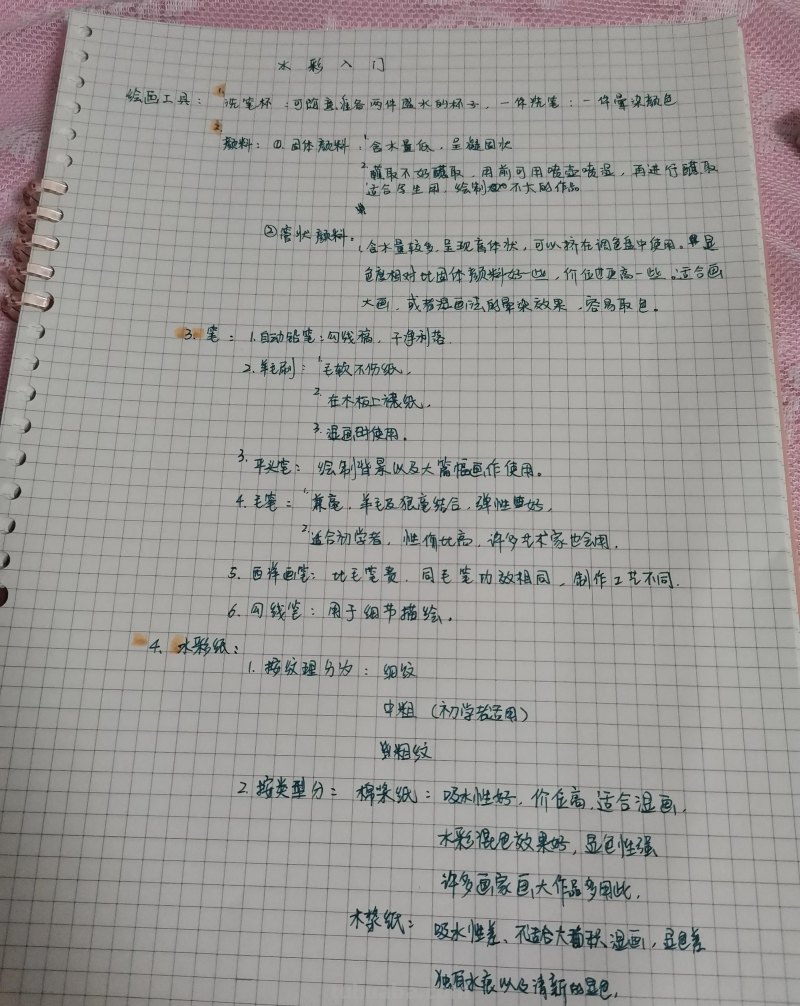 水彩入门
绘画工具：1.洗笔杯：可随意准备两件盛水的杯子，一件洗笔；一件晕染颜色
2.颜料：①.固体颜料：1.含水量低，呈凝固状
2.蘸取不好蘸取，用前可用喷壶喷湿，再进行蘸取
适合学生用，绘制不大的作品
②管状颜料。1.含水量较多，呈现膏体状，可以挤在调色盘中使用。显
色度相对比固体颜料好一些，价位更高一些。适合画
大画，或者湿画法的晕染效果，容易取色。
3.笔：1.自动铅笔：勾线稿，干净利落.
2.羊毛刷：1.毛软不伤纸，
2.在木板上裱纸，
3.湿画时使用。
3.平头笔：绘制背景以及大篇幅画作使用。
4.毛笔：1.兼毫，羊毛及狼毫结合，弹性更好，
2.适合初学者，性价比高，许多艺术家也会用，
5.西洋画笔：比毛笔贵，同毛笔功效相同，制作工艺不同.
6.勾线笔：用于细节描绘。
4.水彩纸：
1.按纹理分为：细纹
中粗（初学者适用）
粗纹
2.按类型分：棉浆纸：吸水性好，价位高，适合湿画，
水彩混色效果好，显色性强
许多画家画大作品多用此，
木浆纸：吸水性差、不适合大面积湿画，显色差
独有水痕以及清新的显色，